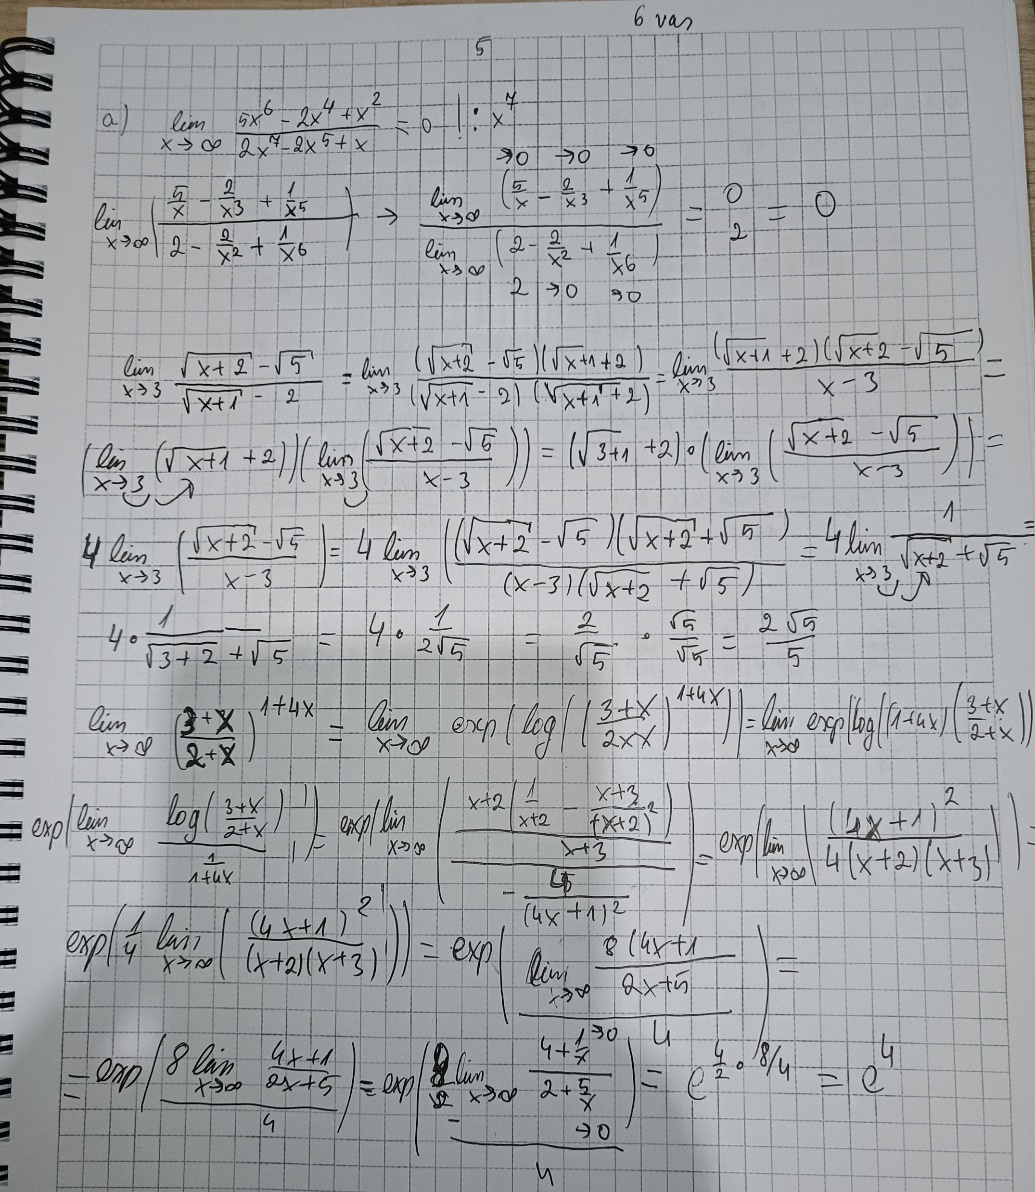 6 var
5
a) lim x→∞ (5x^6 - 2x^4 + x^2)/(2x^7 - 2x^5 + x) = 0 | : x^7
lim x→∞ ((5/x - 2/x^3 + 1/x^5)/(2 - 2/x^2 + 1/x^6)) → (lim x→∞ (5/x - 2/x^3 + 1/x^5) →0 →0 →0)/(lim x→∞ (2 - 2/x^2 + 1/x^6) 2 →0 →0) = 0/2 = 0
lim x→3 (√(x+2) - √5)/(√(x+1) - 2) = lim x→3 ((√(x+2) - √5)(√(x+1) + 2))/((√(x+1) - 2)(√(x+1) + 2)) = lim x→3 ((√(x+1) + 2)(√(x+2) - √5))/(x-3) =
(lim x→3 (√(x+1) + 2))(lim x→3 ((√(x+2) - √5)/(x-3))) = (√(3+1) + 2)·(lim x→3 ((√(x+2) - √5)/(x-3))) =
4 lim x→3 ((√(x+2) - √5)/(x-3)) = 4 lim x→3 (((√(x+2) - √5)(√(x+2) + √5))/((x-3)(√(x+2) + √5))) = 4 lim x→3 1/(√(x+2) + √5) =
4 · 1/(√(3+2) + √5) = 4 · 1/(2√5) = 2/√5 · √5/√5 = 2√5/5
lim x→∞ ((3+x)/(2+x))^(1+4x) = lim x→∞ exp(log(((3+x)/(2+x))^(1+4x))) = lim x→∞ exp(log((1+4x)((3+x)/(2+x))
exp(lim x→∞ (log((3+x)/(2+x)))/(1/(1+4x))) = exp(lim x→∞ ((x+2(1/(x+2) - (x+3)/(x+2)^2))/(x+3))/(-4/(4x+1)^2)) = exp(lim x→∞ ((4x+1)^2/(4(x+2)(x+3)))) =
exp(1/4 lim x→∞ ((4x+1)^2/((x+2)(x+3)))) = exp((lim x→∞ (8(4x+1)/(2x+5))/4) =
= exp((8 lim x→∞ (4x+1)/(2x+5))/4) = exp((8 lim x→∞ (4 + 1/x →0)/(2 + 5/x →0))/4) = e^(4/2 · 8/4) = e^4